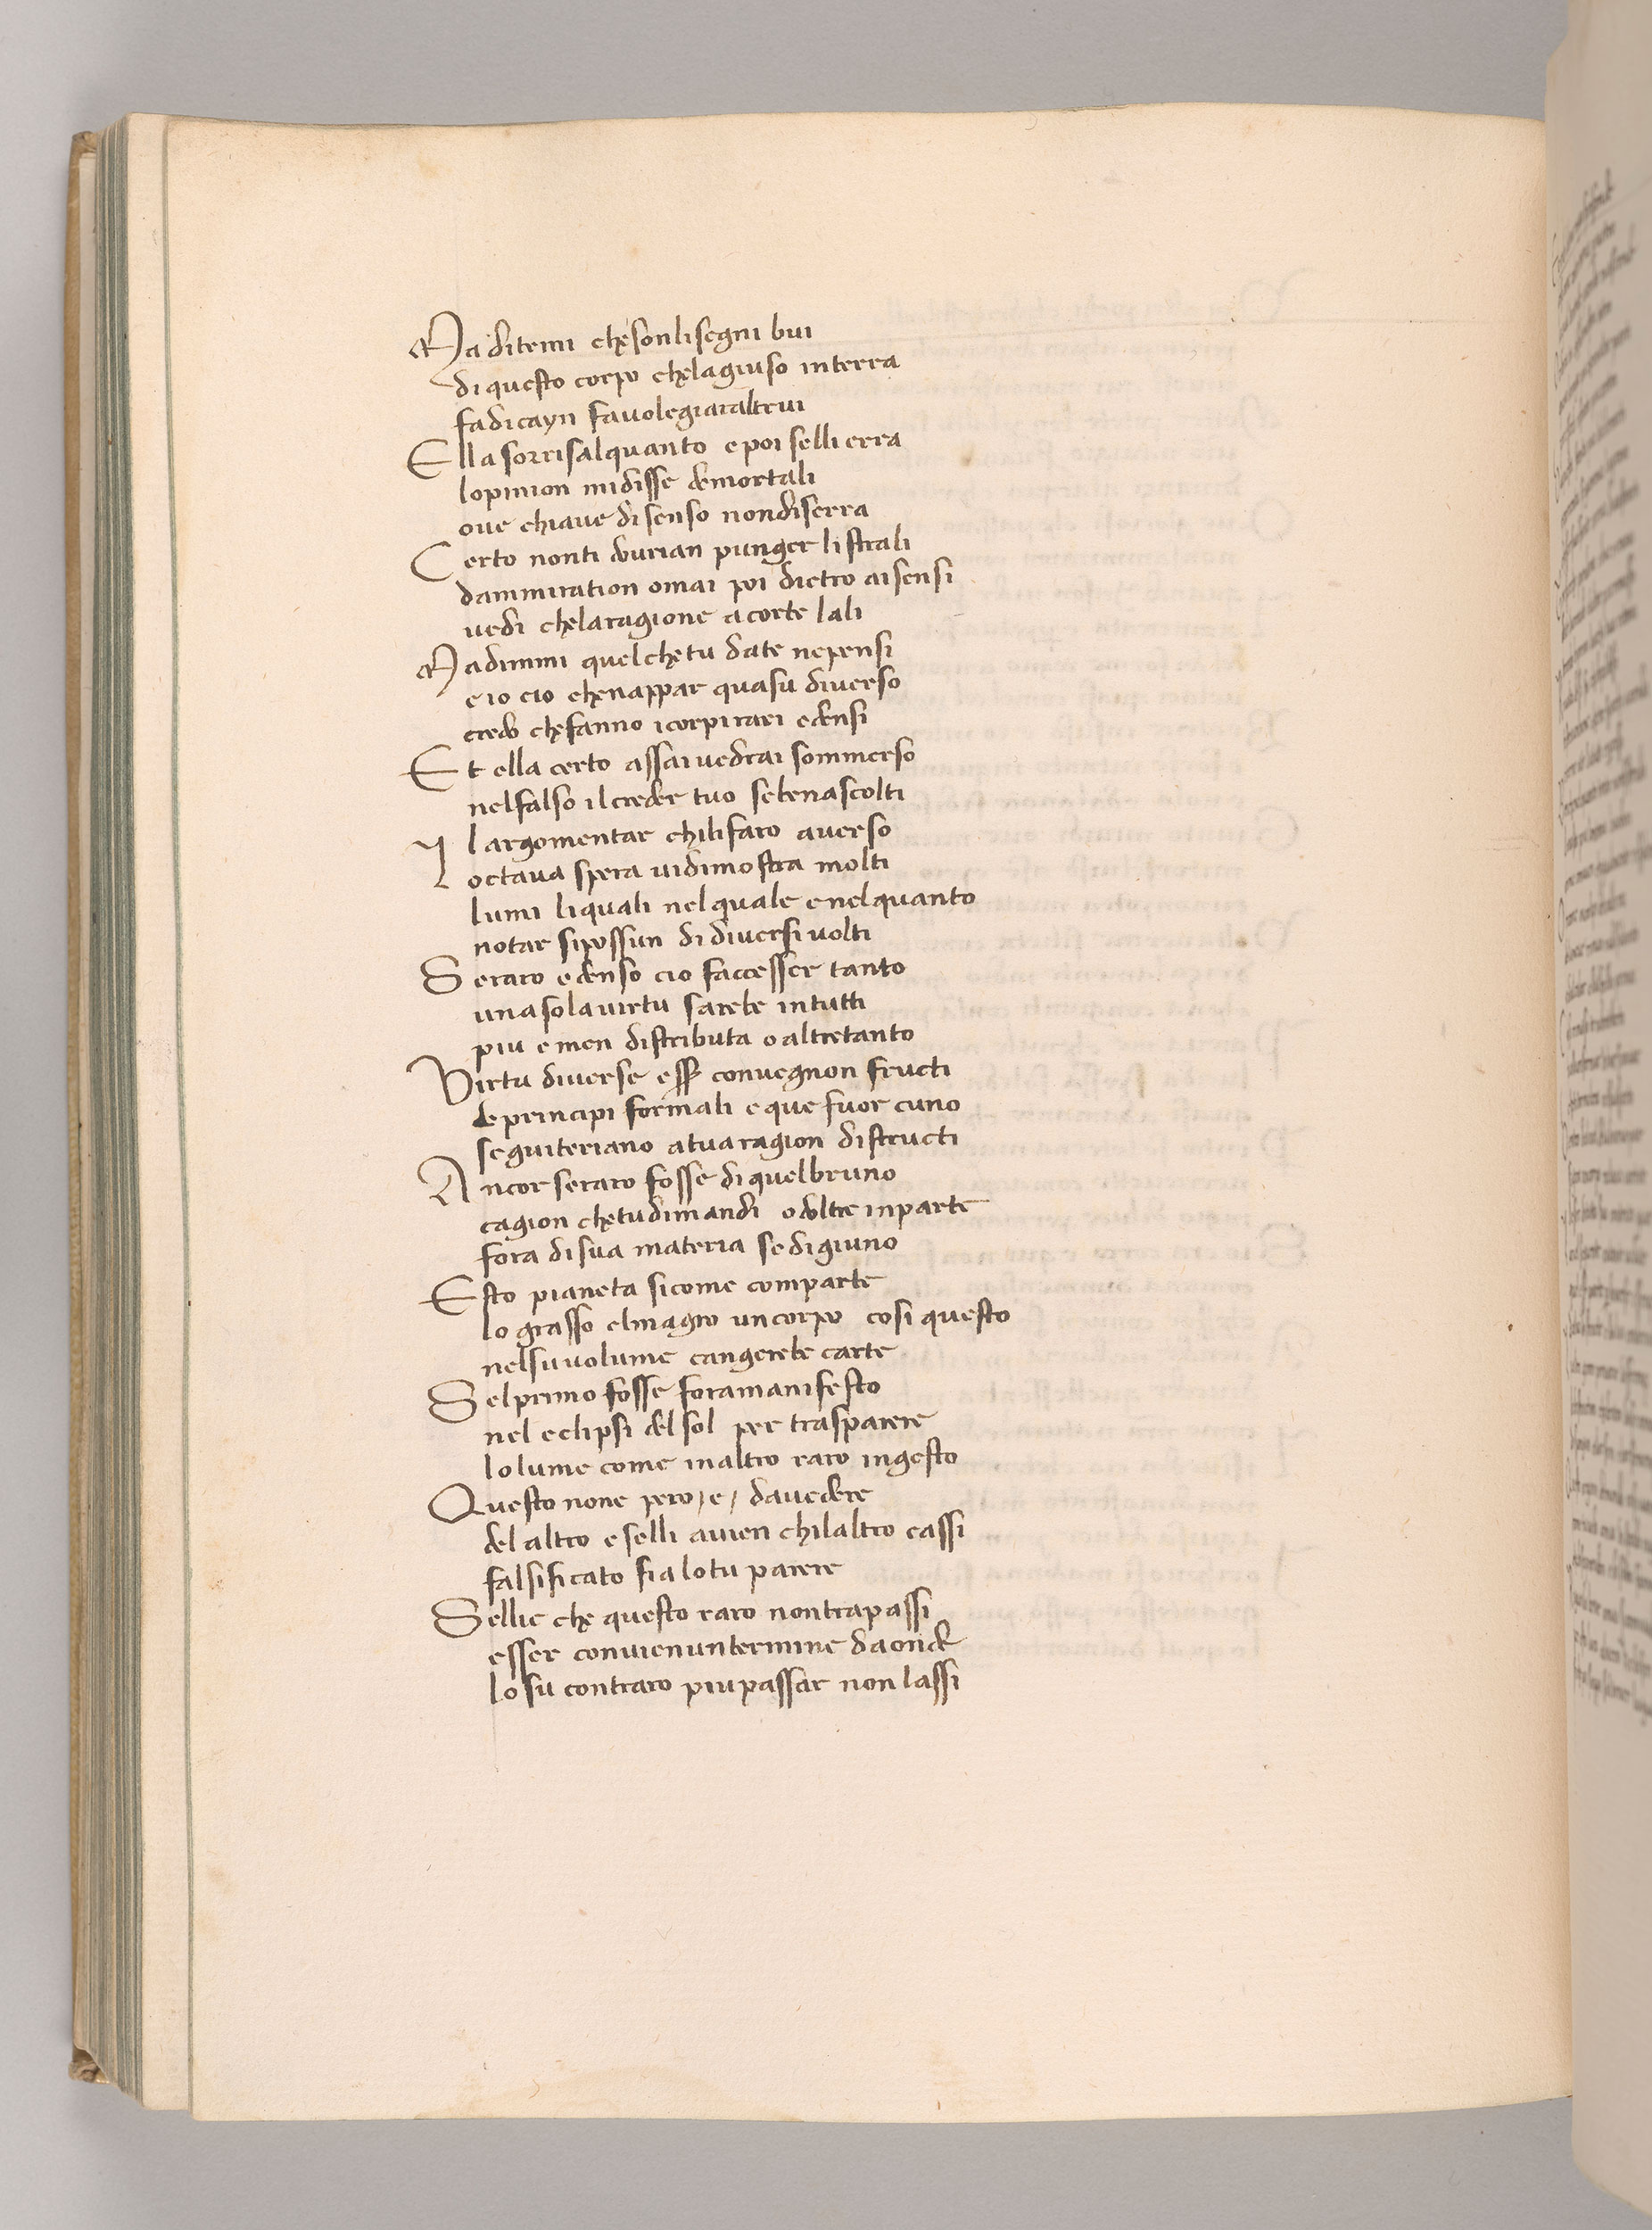 Ma ditemi che son li segni bui
di questo corpo che lagiuso in terra
fa di cayn fauolegiar altrui
Ella sorrisalquanto e poi selli erra
lopinion mi disse de mortali
oue chiaue di senso non diserra
Certo non ti dourian punger li strali
dammiration omai poi dietro ai sensi
uedi che la ragione a corte lali
Ma dimmi quel che tu da te ne pensi
e io cio che nappar qua su diuerso
credo che fanno i corpi rari e densi
Et ella certo assai uedrai sommerso
nel falso il creder tuo se ben ascolti
l argomentar chi li faro auerso
La octaua spera ui dimostra molti
lumi li quali nel quale e nel quanto
notar si possun di diuersi uolti
Se raro e denso cio faccesser tanto
una sola uirtu sarebe in tutti
piu e men distributa o altretanto
Virtu diuerse esser conuegnon fructi
de principi formali e que fuor cuno
seguiteriano a tua ragion distructi
Ancor se raro fosse di quel bruno
cagion che tu dimandi o doltre in parte
fora di sua materia se digiuno
Esto pianeta si come comparte
lo grasso el magro un corpo cosi questo
nel su uolume cangerebe carte
Sel primo fosse fora manifesto
nel eclipsi del sol per trasparere
lo lume come in altro raro ingesto
Questo none pero / e / da uedere
del altro e selli auien chi laltro cassi
falsificato fia lo tu parere
Sellie che questo raro non trapassi
esser conuien un termine da onde
lo su contraro piu passar non lassi